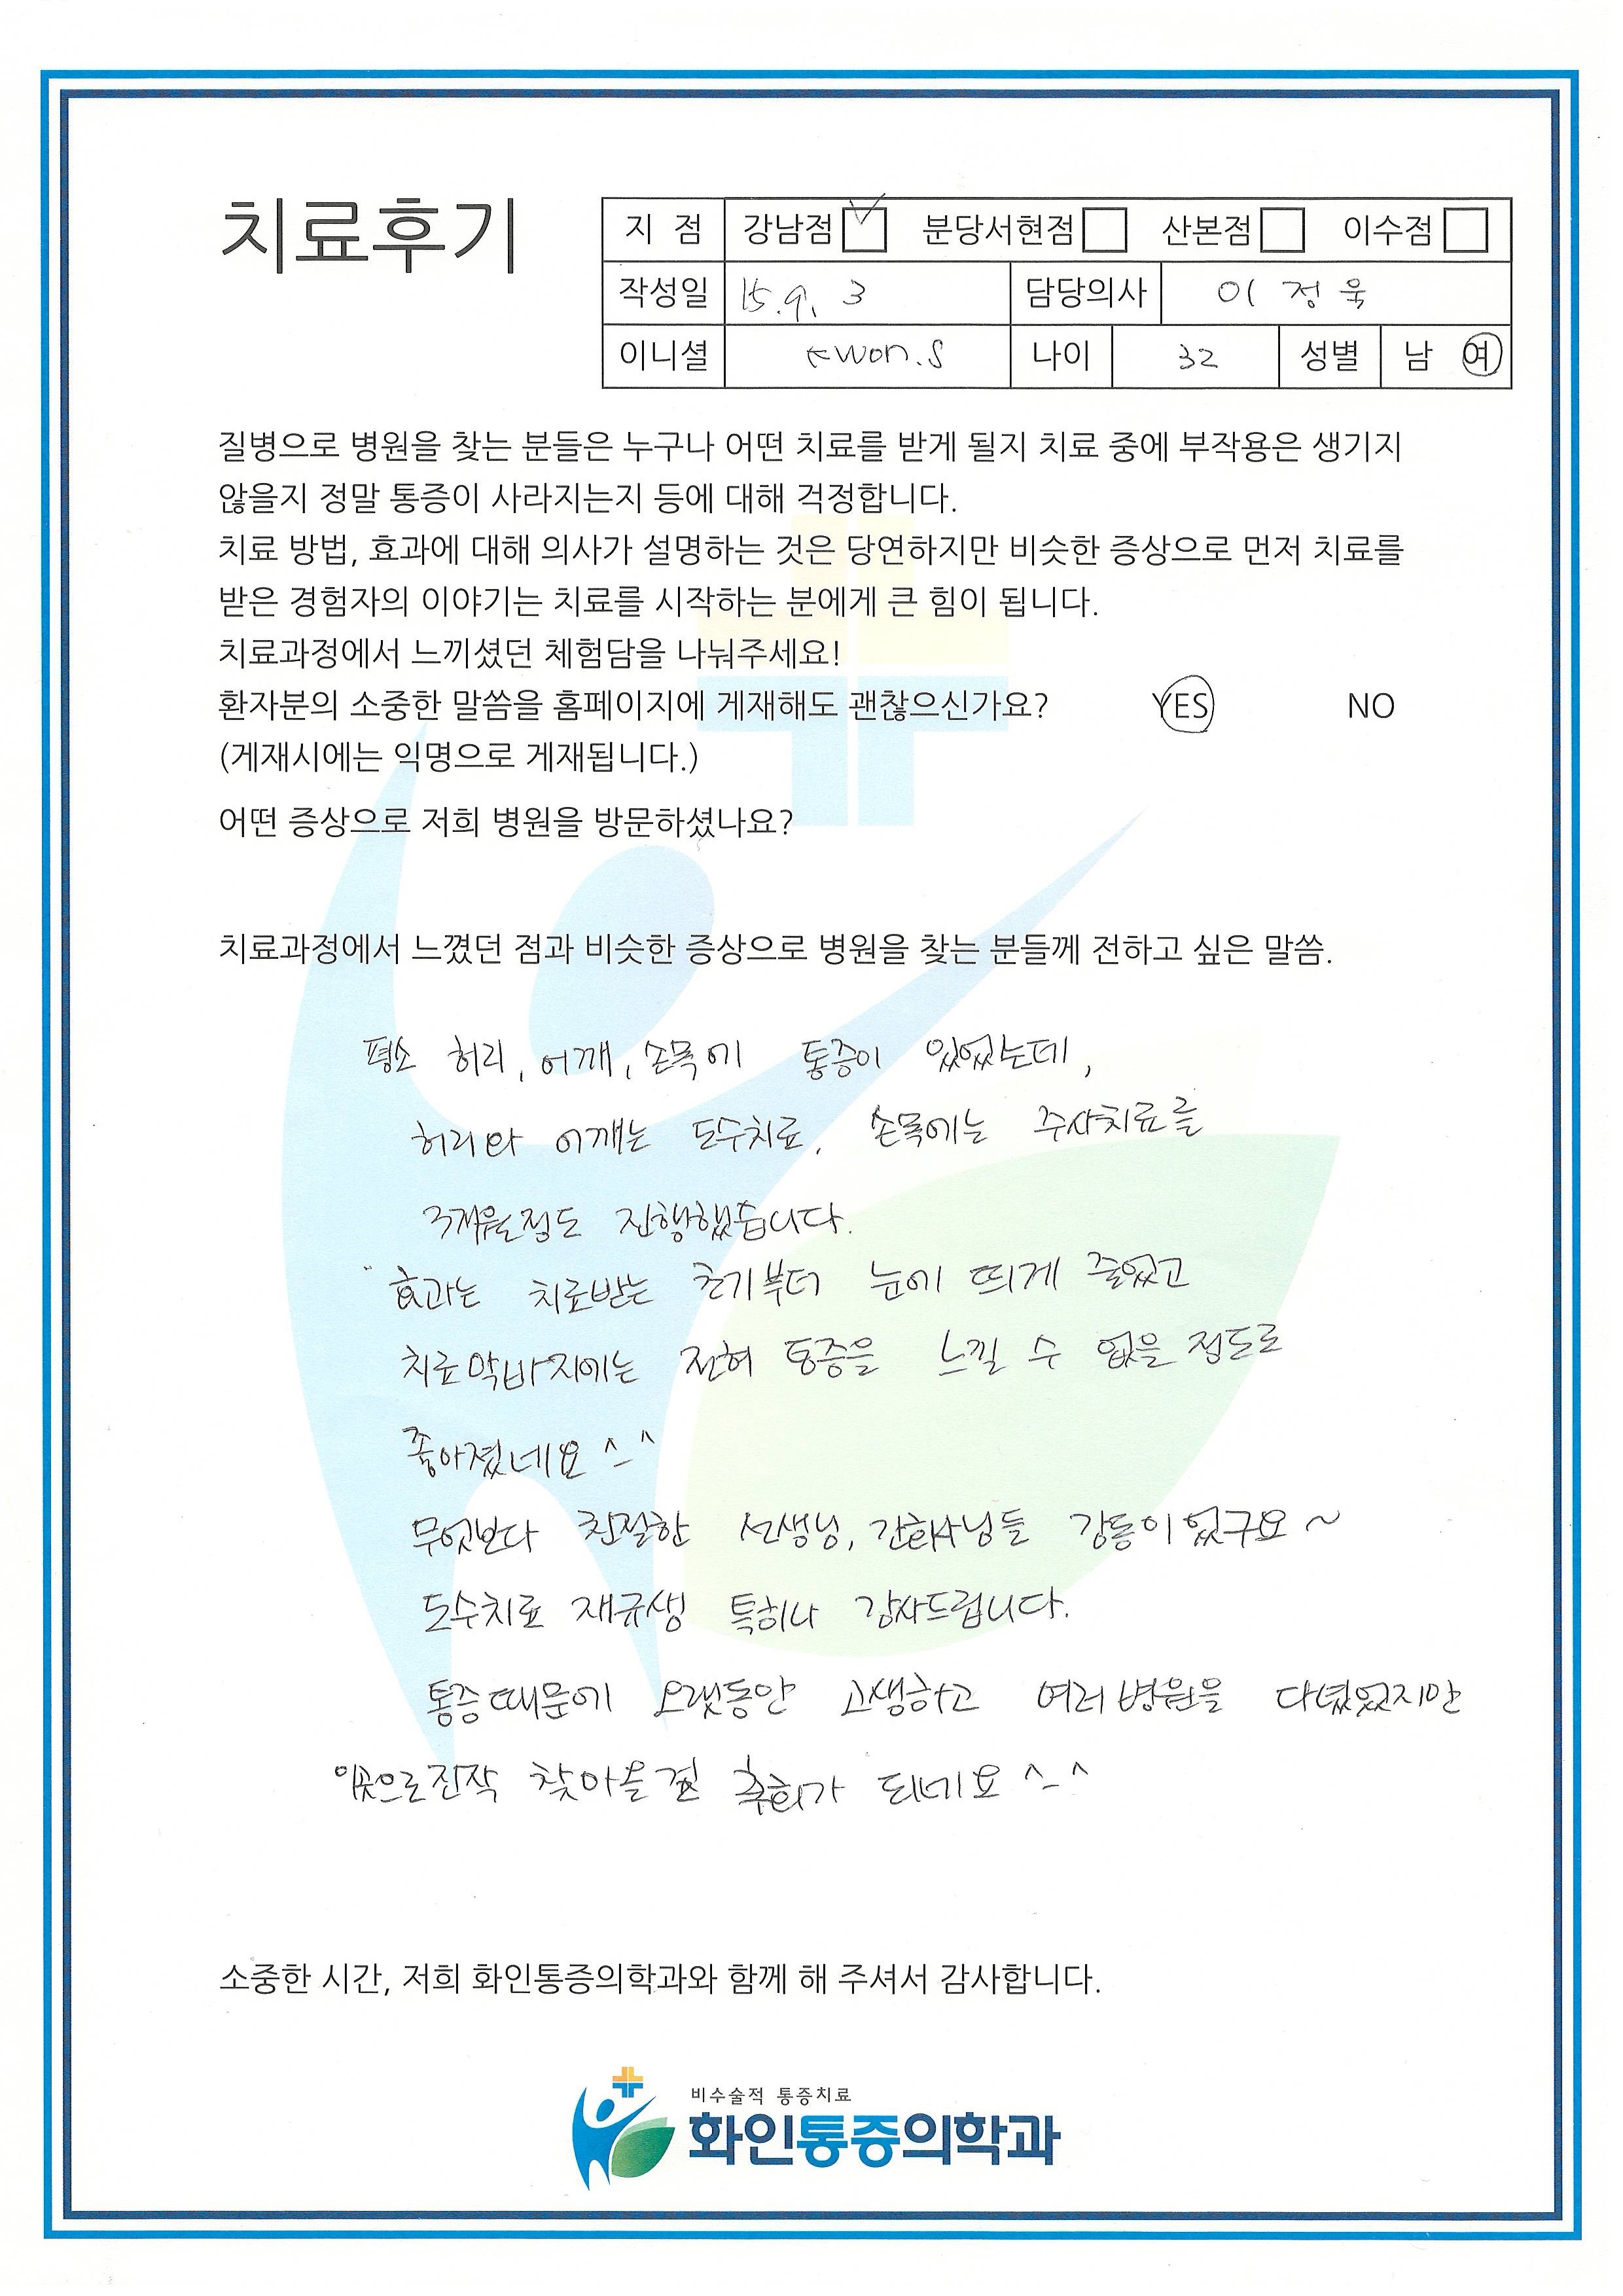 치료후기
지 점 강남점 분당서현점 산본점 이수점
작성일 15.9. 3 담당의사 이 정 욱
이니셜 kwon.S 나이 32 성별 남 여
질병으로 병원을 찾는 분들은 누구나 어떤 치료를 받게 될지 치료 중에 부작용은 생기지
않을지 정말 통증이 사라지는지 등에 대해 걱정합니다.
치료 방법, 효과에 대해 의사가 설명하는 것은 당연하지만 비슷한 증상으로 먼저 치료를
받은 경험자의 이야기는 치료를 시작하는 분에게 큰 힘이 됩니다.
치료과정에서 느끼셨던 체험담을 나눠주세요!
환자분의 소중한 말씀을 홈페이지에 게재해도 괜찮으신가요? YES NO
(게재시에는 익명으로 게재됩니다.)
어떤 증상으로 저희 병원을 방문하셨나요?
치료과정에서 느꼈던 점과 비슷한 증상으로 병원을 찾는 분들께 전하고 싶은 말씀.
평소 허리, 어깨, 손목에 통증이 있었는데,
허리와 어깨는 도수치료, 손목에는 주사치료를
3개월정도 진행했습니다.
효과는 치료받는 초기부터 눈에 띄게 줄었고
치료막바지에는 전혀 통증을 느낄 수 없을 정도로
좋아졌네요 ^_^
무엇보다 친절한 선생님, 간호사님들 감동이었구요~
도수치료 재규생 특히나 감사드립니다.
통증때문에 오랫동안 고생하고 여러병원을 다녔었지만
이곳으로진작 찾아올걸 후회가 되네요 ^_^
소중한 시간, 저희 화인통증의학과와 함께 해 주셔서 감사합니다.
비수술적 통증치료
화인통증의학과